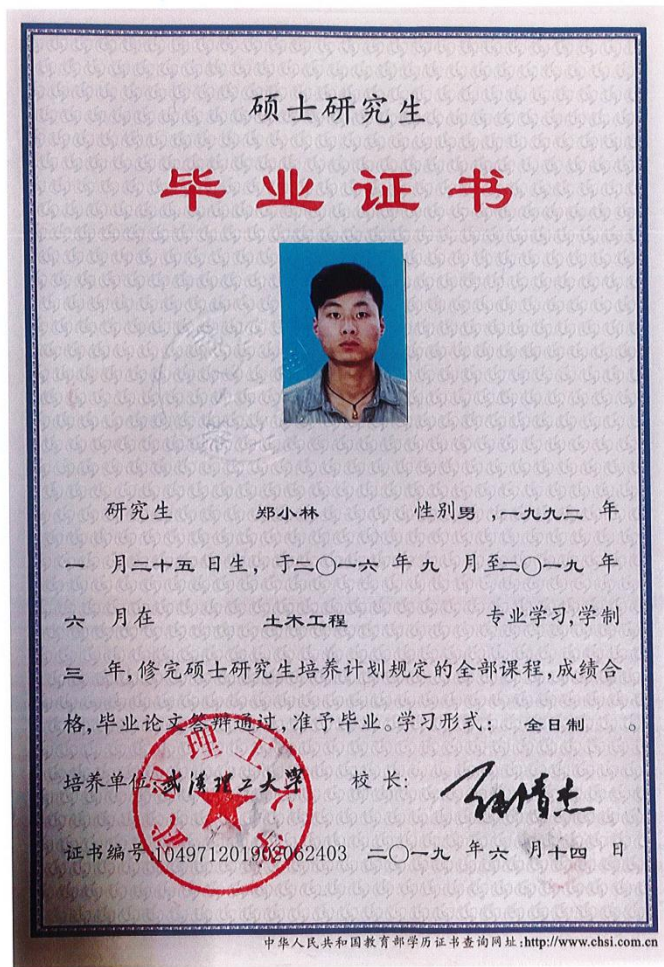 硕士研究生
毕业证书
研究生 郑小林 性别男，一九九二 年
一 月二十五日生，于二〇一六 年 九 月至二〇一九 年
六 月在 土木工程 专业学习，学制
三 年，修完硕士研究生培养计划规定的全部课程，成绩合
格，毕业论文答辩通过，准予毕业。学习形式： 全日制 。
培养单位：武汉理工大学 校 长：
证书编号：104971201902062403 二〇一九 年 六 月十四 日
中华人民共和国教育部学历证书查询网址：http://www.chsi.com.cn